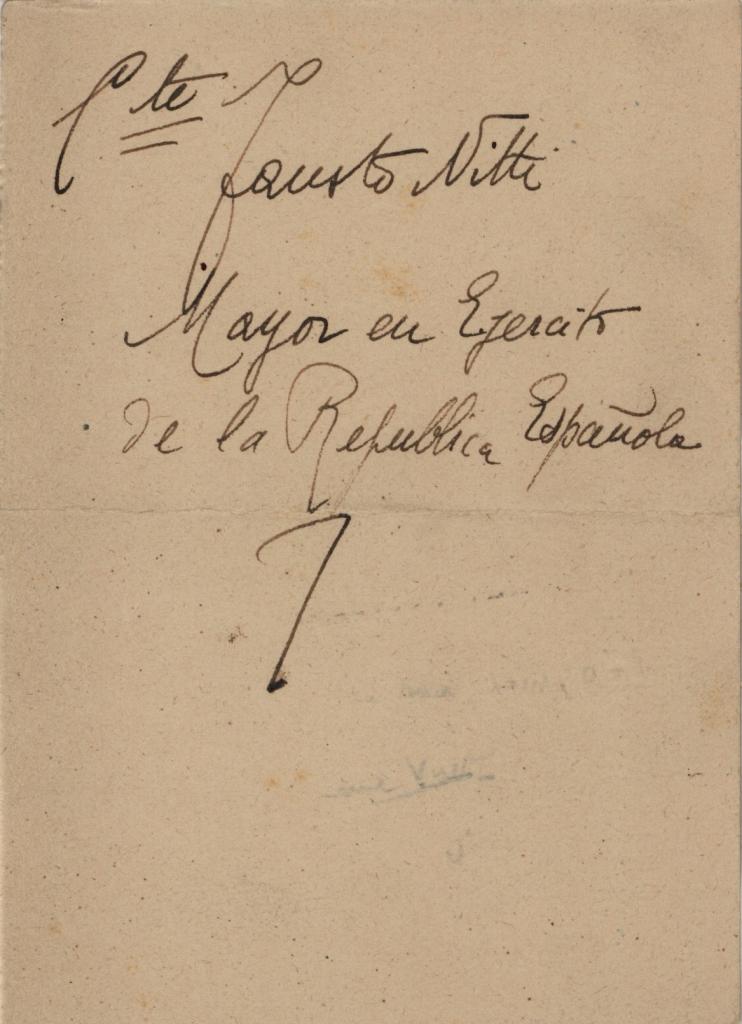 Cte
Fausto Nitti
Mayor en Ejercito
de la Republica Española